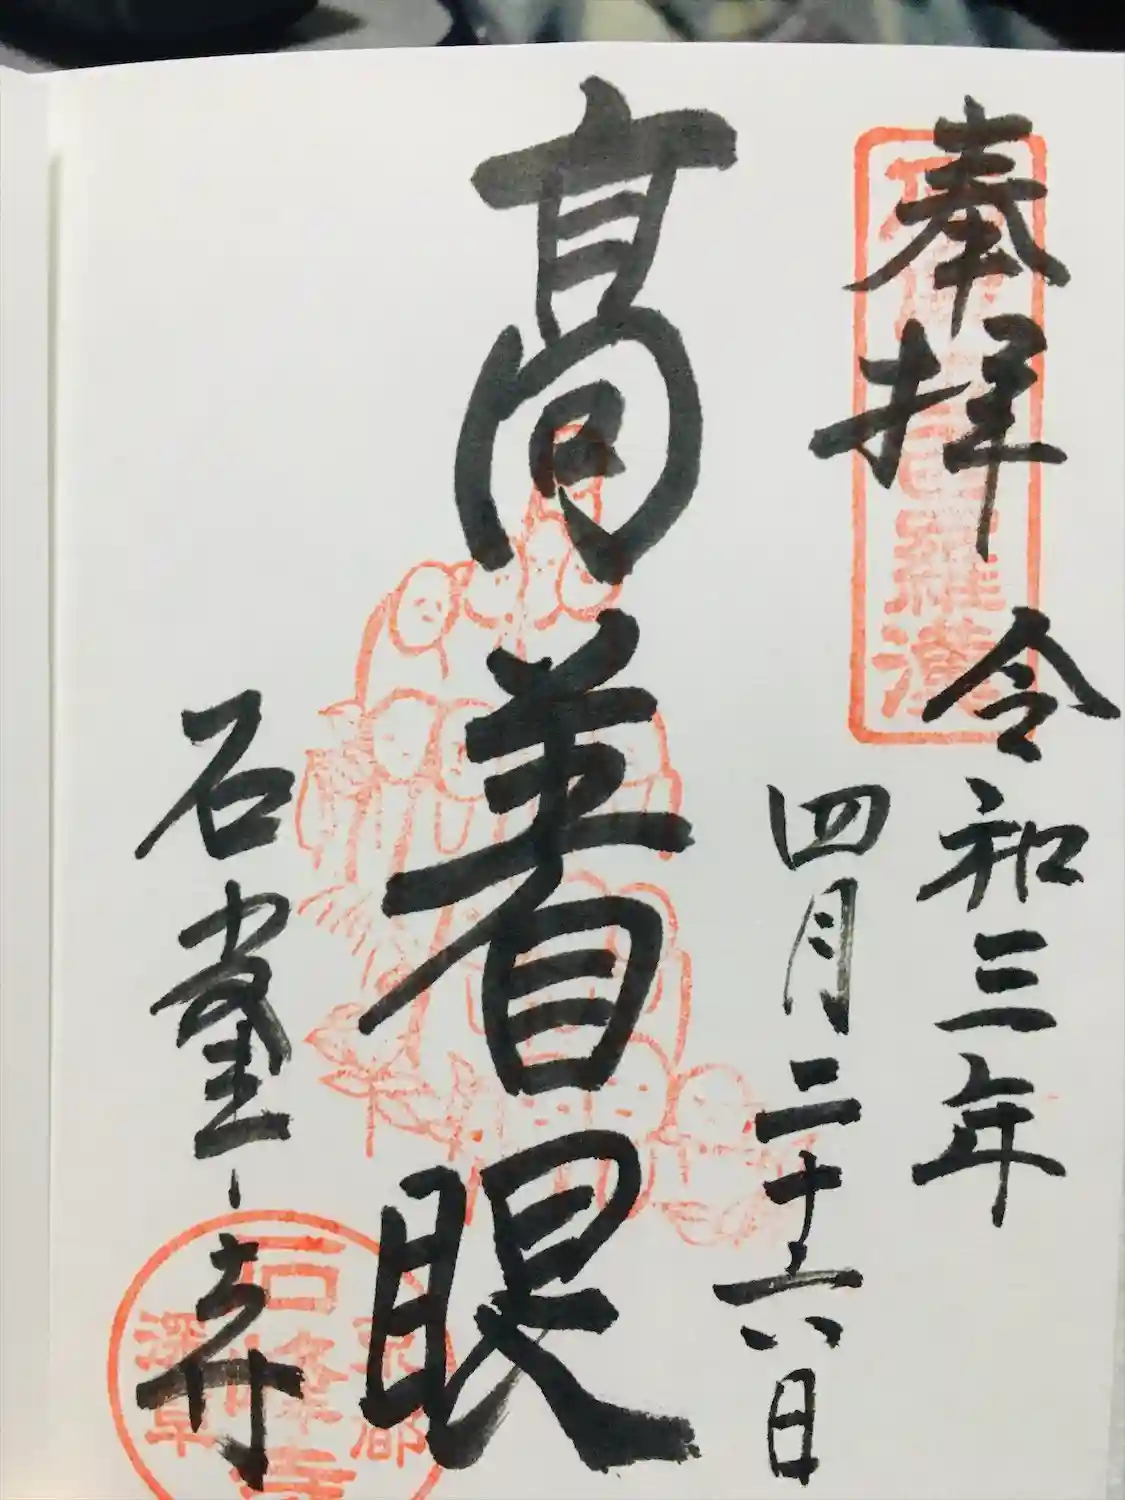 奉拝
令和三年
四月二十六日
髙着眼
石峯寺
羅漢
京都
石峰寺
深草